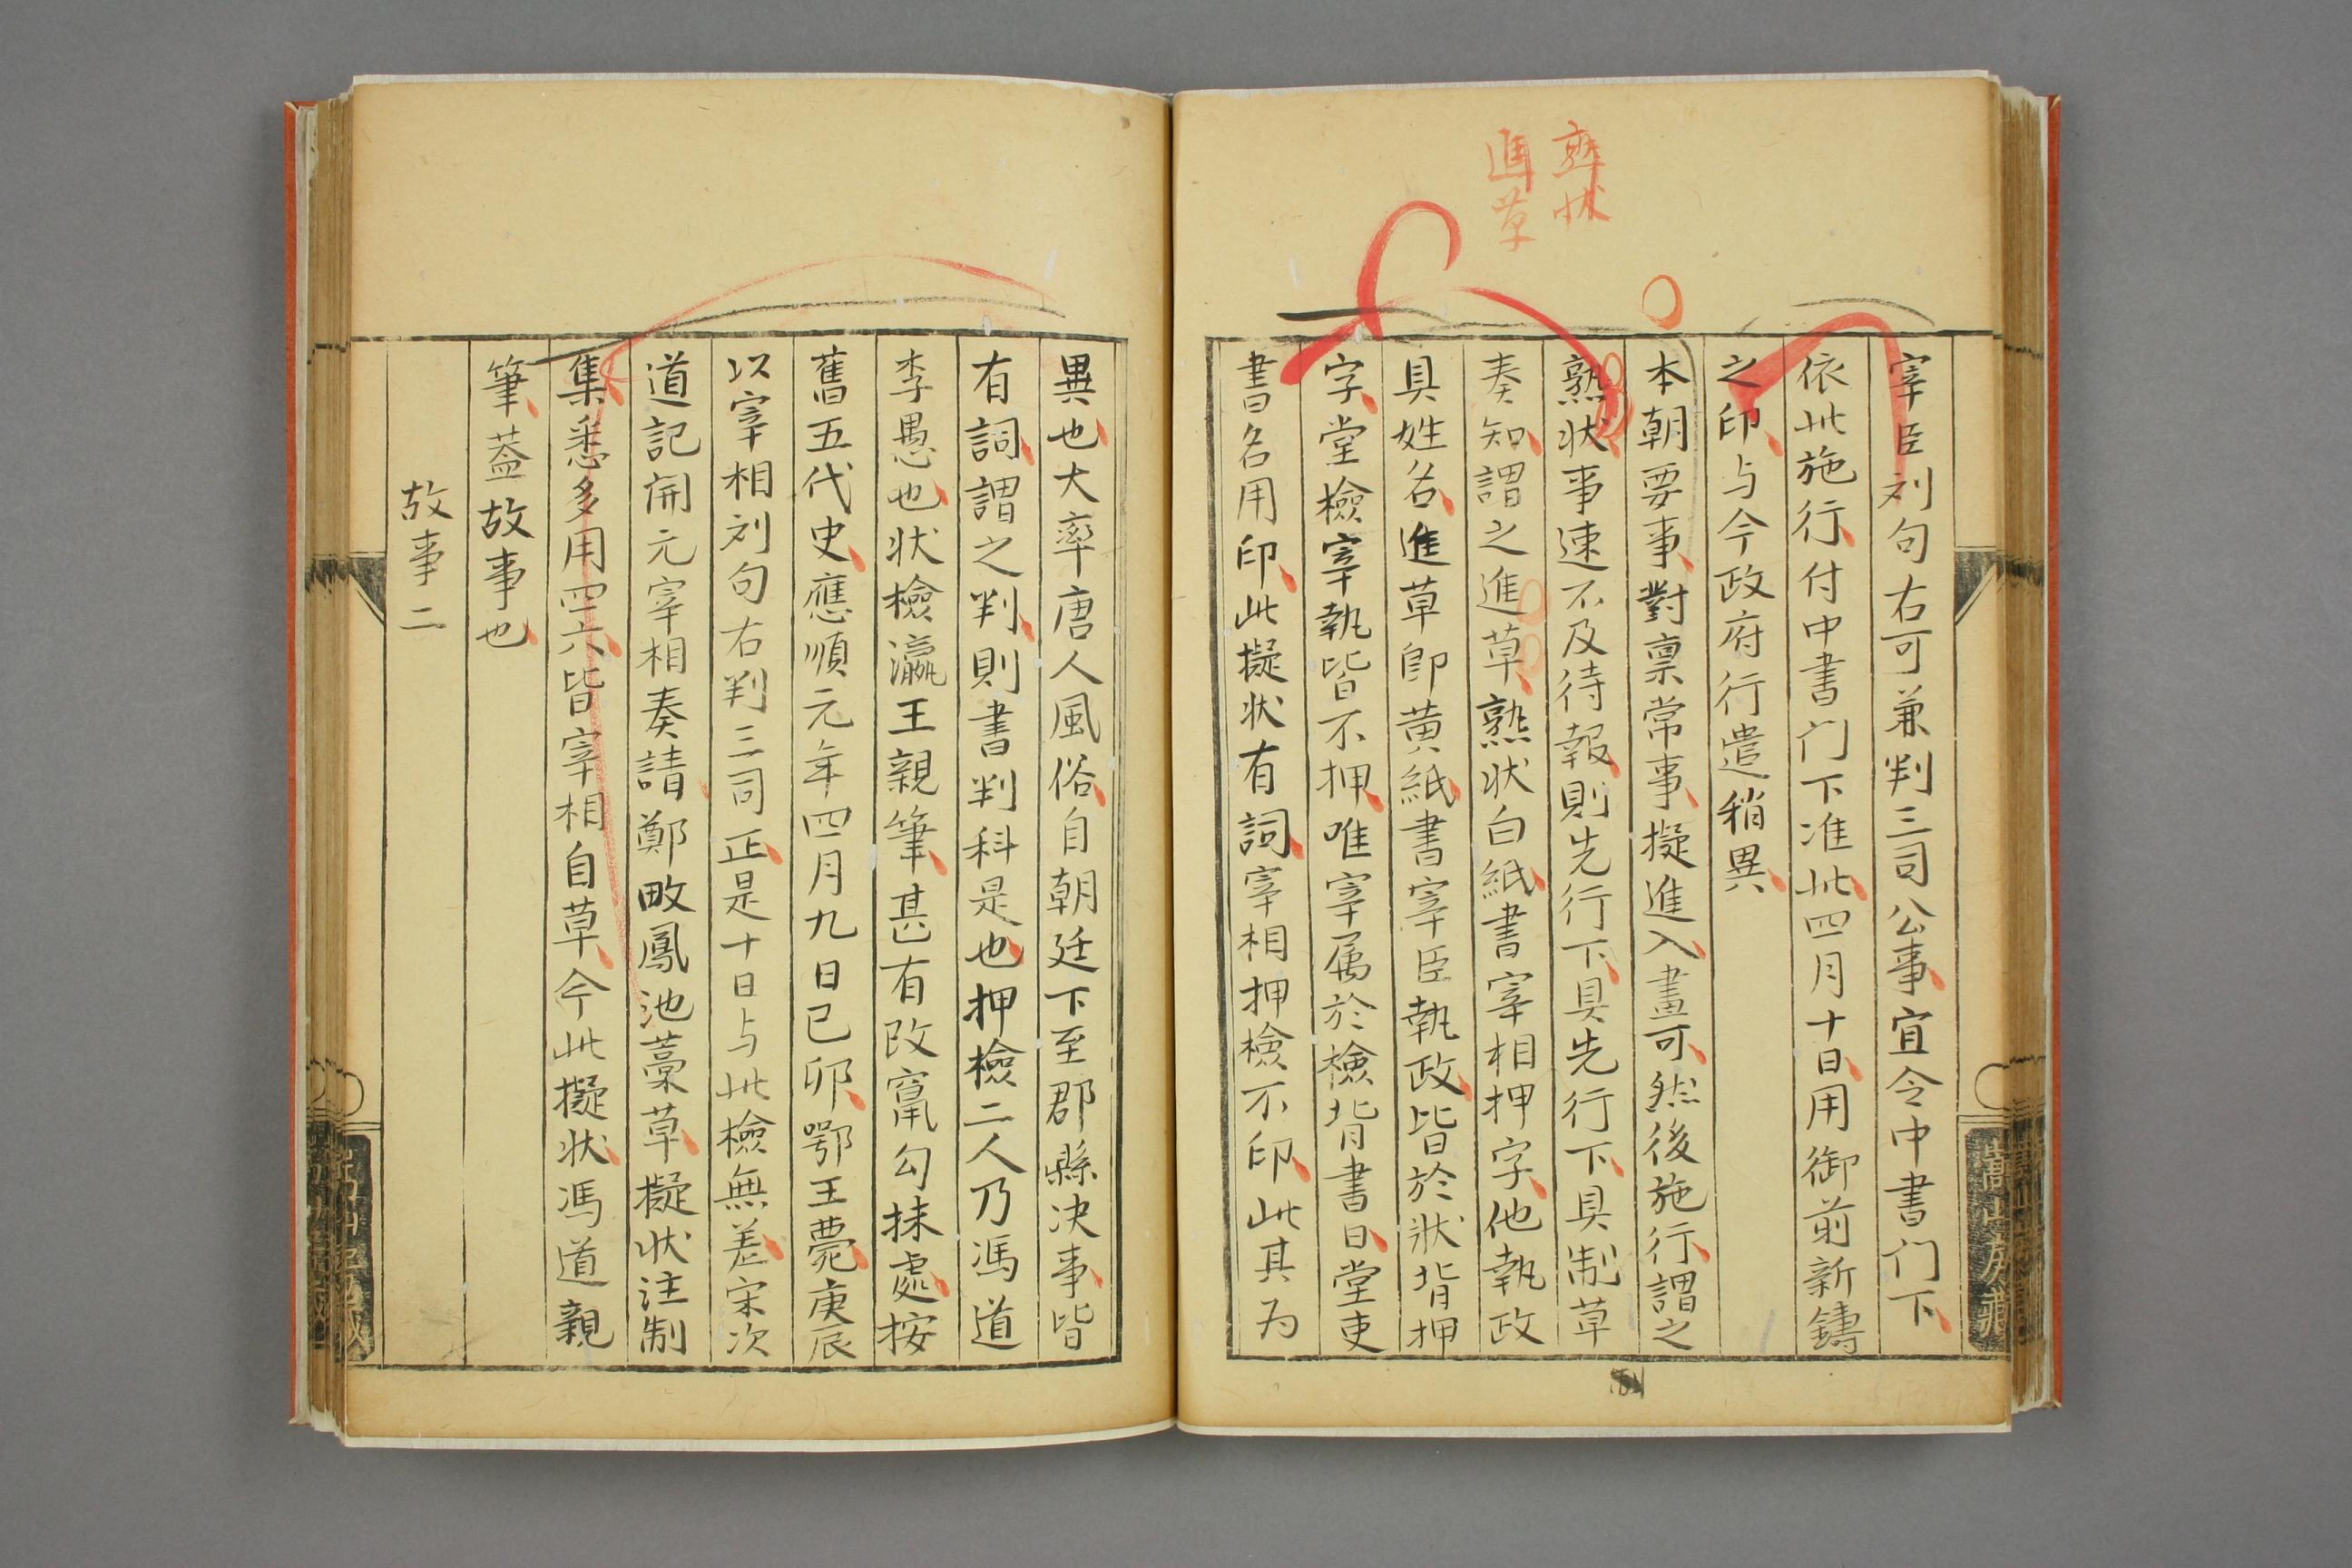 熟状
進草
宰臣刘句右可兼判三司公事宜令中書门下
依此施行付中書门下准此四月十日用御前新鑄
之印与今政府行遣稍異
本朝要事對禀常事擬進入畫可然後施行謂之
熟状事速不及待報則先行下具先行下具制草
奏知謂之進草熟状白紙書宰相押字他執政
具姓名進草即黄紙書宰臣執政皆於状背押
字堂檢宰執皆不押唯宰属於檢背書日堂吏
書名用印此擬状有詞宰相押檢不印此其为
嵩山房藏
異也大率唐人風俗自朝廷下至郡縣决事皆
有詞謂之判則書判科是也押檢二人乃馮道
李愚也状檢瀛王親筆甚有改竄勾抹處按
舊五代史應順元年四月九日已卯鄂王薨庚辰
以宰相刘句右判三司正是十日与此檢無差宋次
道記開元宰相奏請鄭畋鳳池藁草擬状注制
集悉多用四六皆宰相自草今此擬状馮道親
筆葢故事也
故事二